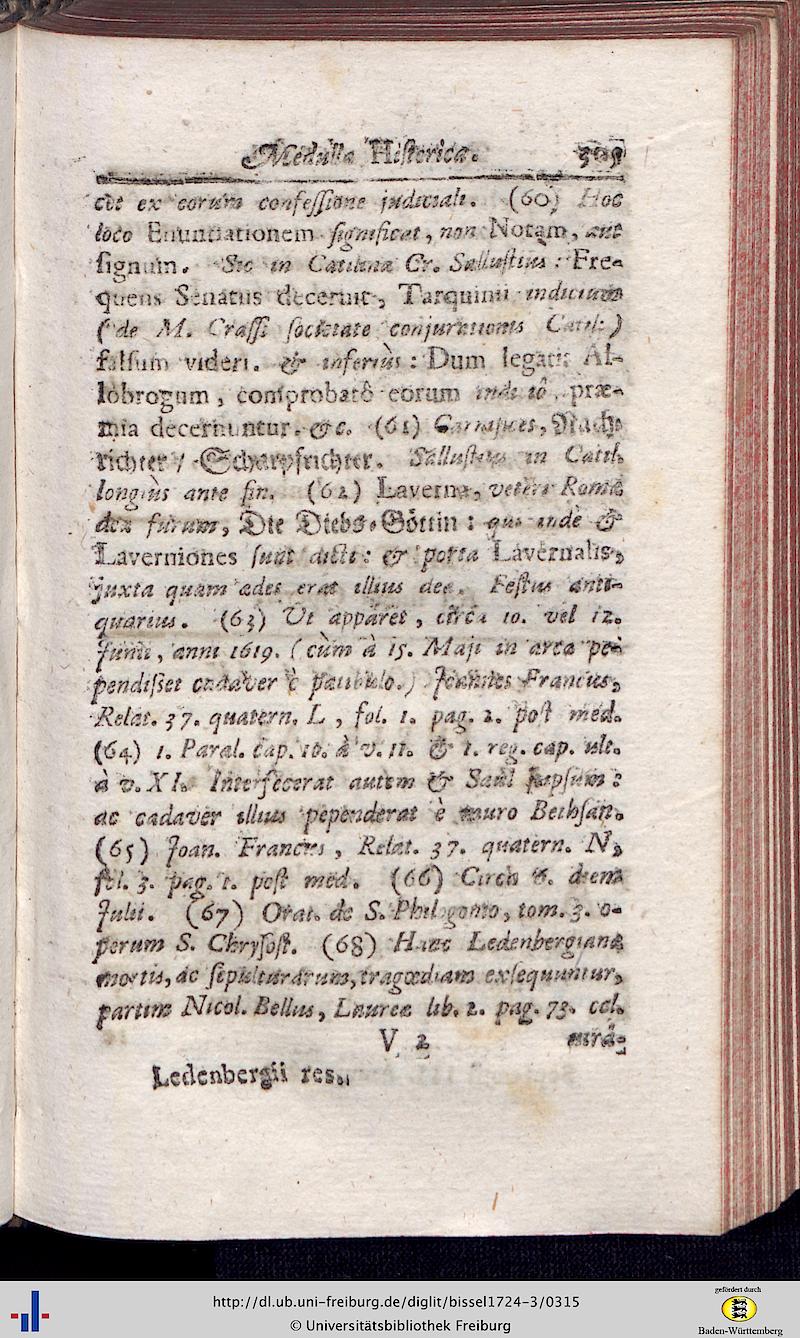 Medulla Historica. 309
cet ex eorum confessione judiciali. (60) Hoc
loco Enuntiationem significat, non Notam, aut
signum. Sic in Catilina Cr. Sallustius: Fre-
quens Senatus decernit, Tarquinii indicium
(de M. Crassi societate conjurationis Catil:)
falsum videri. & inferiùs: Dum legatis Al-
lobrogum, comprobatô eorum indiciô, præ-
mia decernuntur. &c. (61) Carnifices, Nach-
richter / Scharpfrichter. Sallustius in Catil.
longiùs ante fin. (62) Laverna, veteri Romæ
dea furum, Die Diebs-Göttin: qui indè &
Laverniones sunt dicti: & porta Lavernalis,
juxta quam ædes erat illius deæ. Festus anti-
quarius. (63) Ut apparet, circa 10. vel 12.
Junii, anni 1619. (cùm à 15. Maji in arca pe-
pendisset cadaver è patibulo.) Joannes Francus,
Relat. 37. quatern. L, fol. 1. pag. 2. post med.
(64) 1. Paral. cap. 10. à v. 11. & 1. reg. cap. ult.
à v. XI. Interfecerat autem & Saul seipsum:
ac cadaver illius pependerat è muro Bethsan.
(65) Joan. Francus, Relat. 37. quatern. N,
fol. 3. pag. 1. post med. (66) Circa 6. diem
Julii. (67) Orat. de S. Philogonio, tom. 3. o-
perum S. Chrysost. (68) Hanc Ledenbergianæ
mortis, ac sepulturarum, tragœdiam exsequuntur,
partim Nicol. Bellus, Laureæ lib. 2. pag. 73. col.
V 2
Ledenbergii res.
http://dl.ub.uni-freiburg.de/diglit/bissel1724-3/0315
© Universitätsbibliothek Freiburg
gefördert durch
Baden-Württemberg